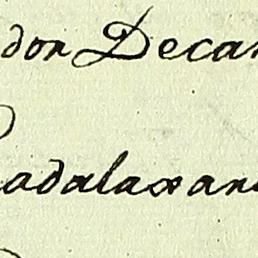 dor Decan
adalaxara